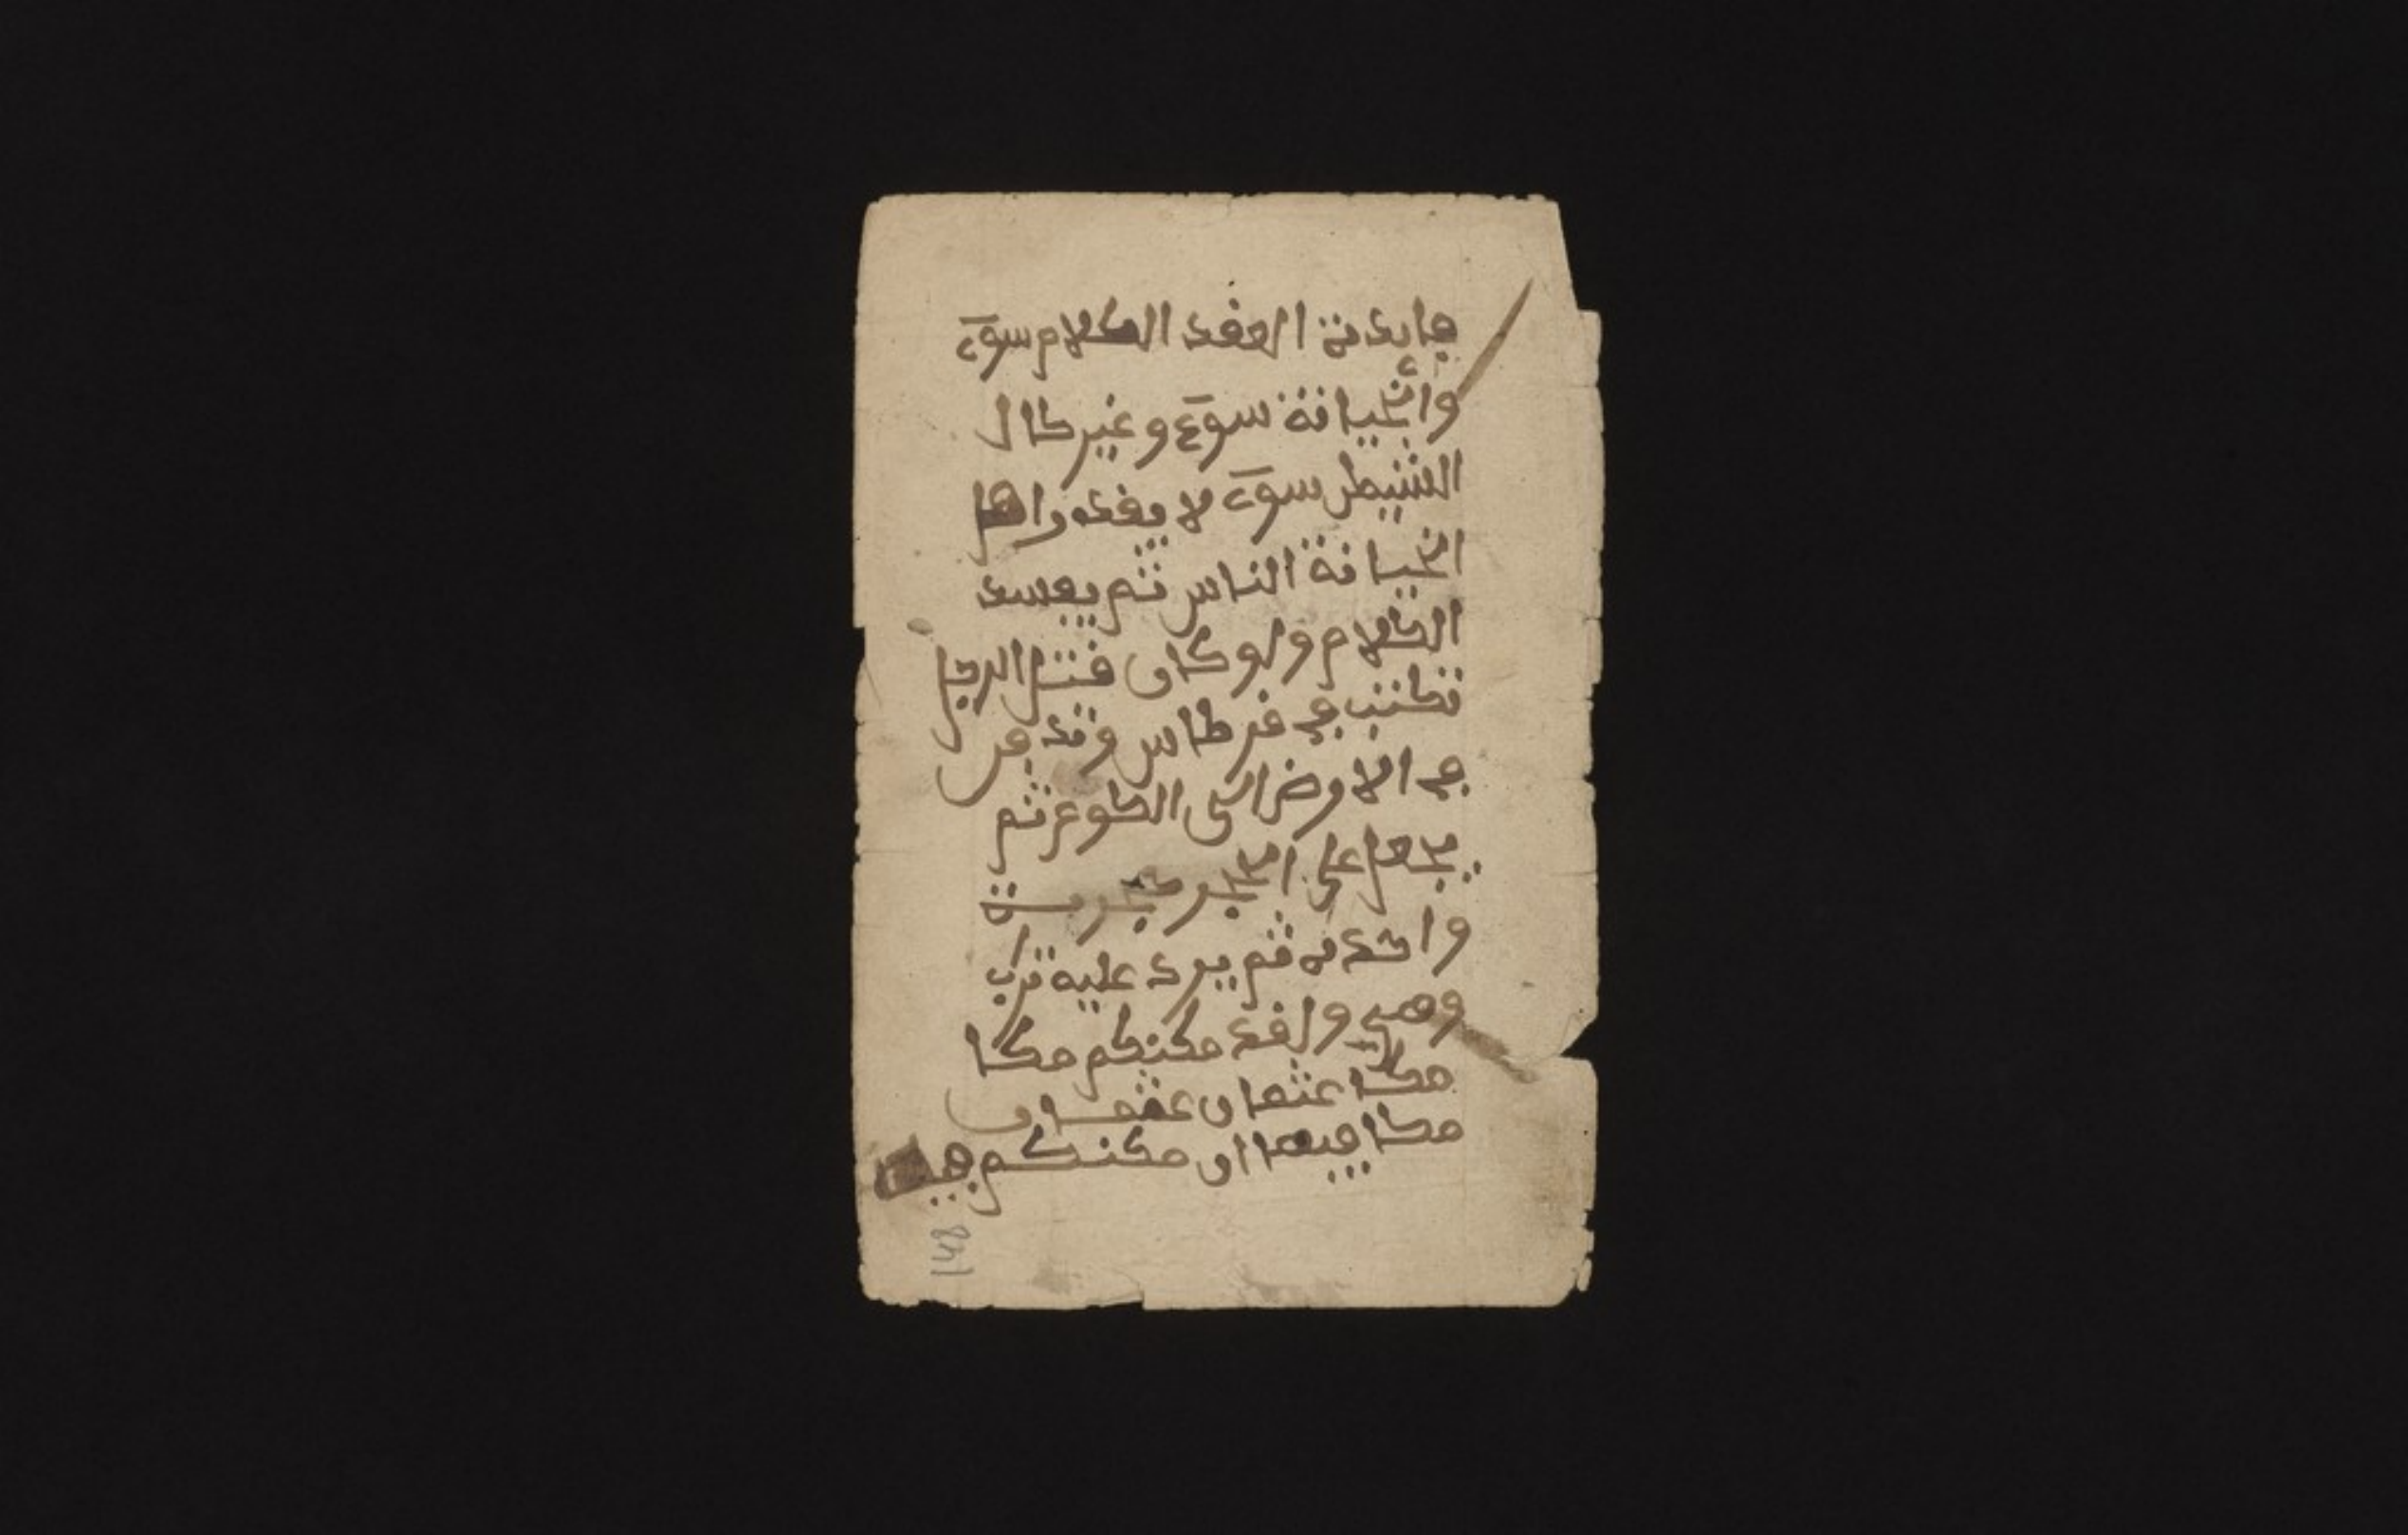 فايدة العقد الكلام سوء
والخيانة سوء وغير كال
الشيطر سوء لا يفدراها
الخيانة الناس ثم يفسد
الكلام ولو كان قتل الرجل
تكتب في قرطاس وتدفن
في الاوض الى الكوع ثم
يجعل على الحجر
وا ثم يرد عليه تراب
وهي ولفد مكنكم مكا
مكا عثمان عثمان
مكا فيما ان مكنكم فيه
148